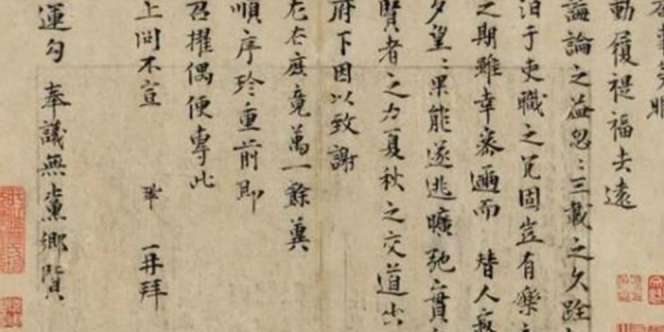 動履禔福去遠
誨論之益忽〻三載之久跧
汩于吏職之冗固豈有樂
之期雖幸密邇而 替人寂
夕望〻果能遂逃曠弛實
賢者之力夏秋之交道出
府下因以致謝
左右庶竟萬一餘冀
順序珍重前即
召擢偶便專此
上問不宣 鞏 再拜
運勾 奉議無黨鄉賢